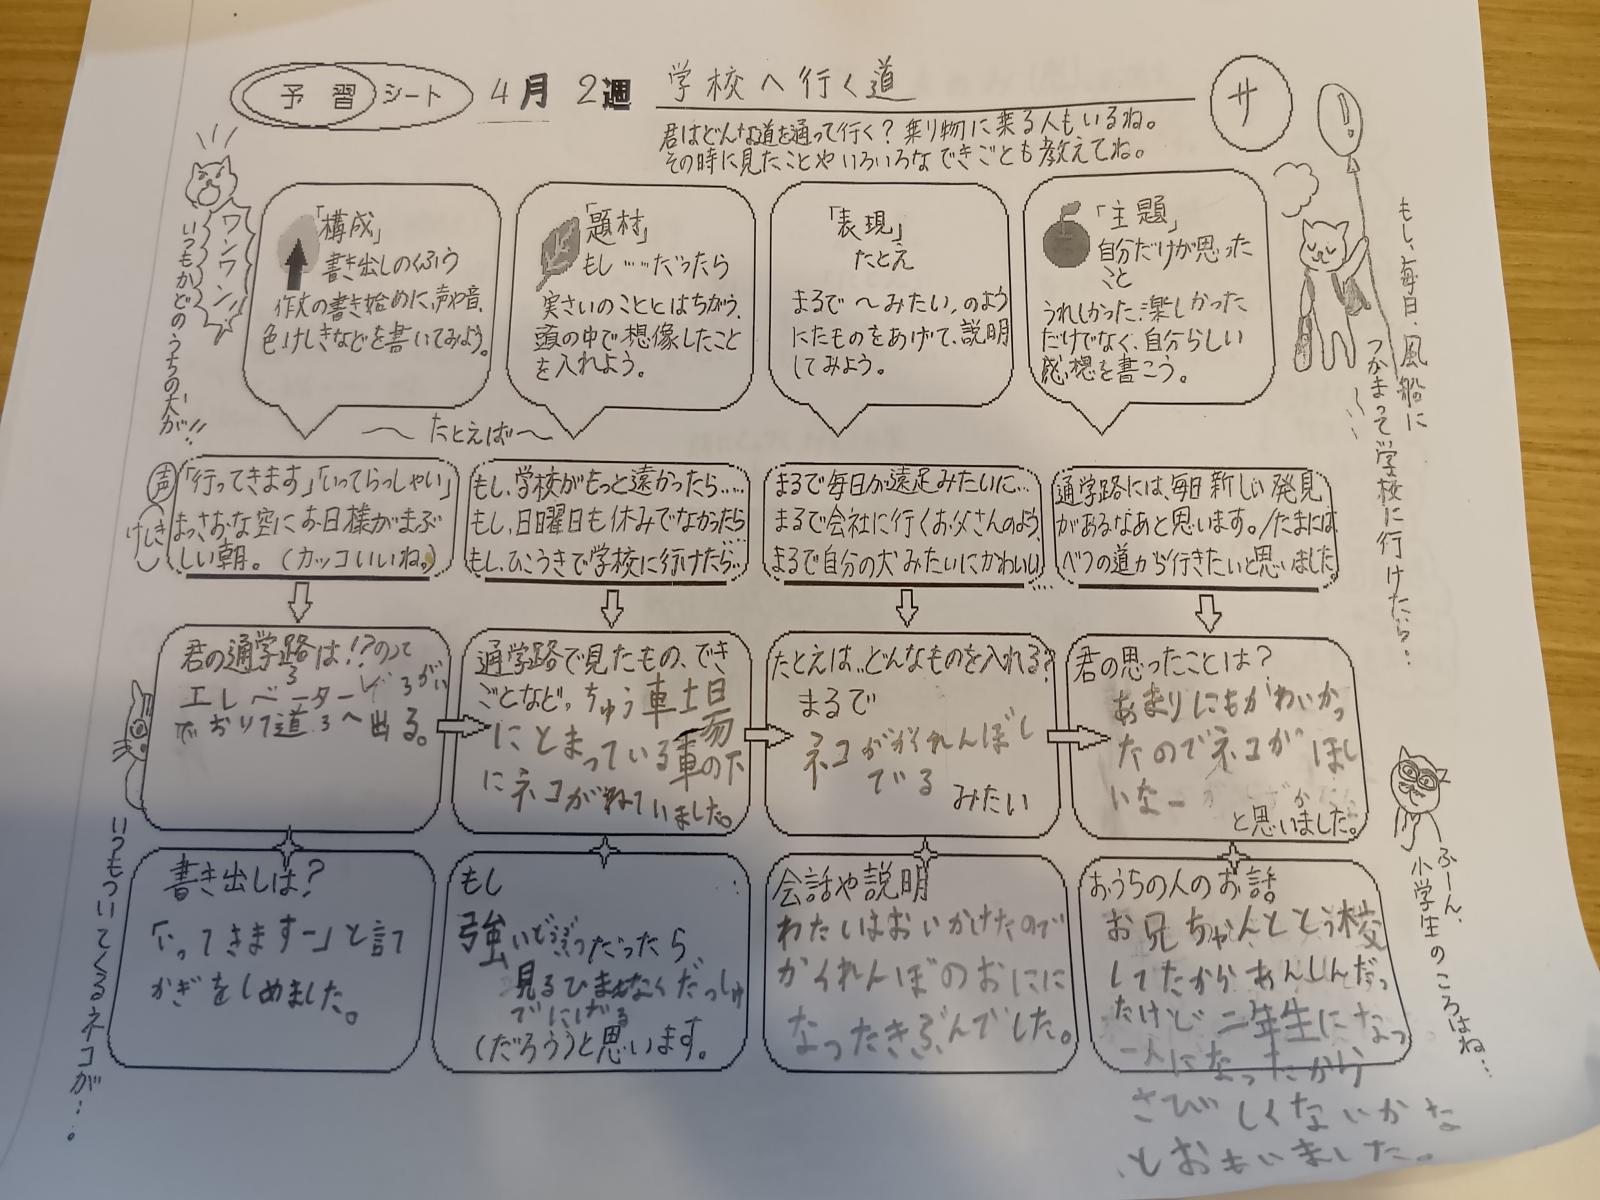 予習シート 4月 2週 学校へ行く道 サ
君はどんな道を通って行く？乗り物に乗る人もいるね。
その時に見たことやいろいろなできごとも教えてね。
ワンワン！
いつもかどのうちの犬が!!
「構成」
書き出しのくふう
作文の書き始めに、声や音、
色けしきなどを書いてみよう。
「題材」
もし……だったら
実さいのこととはちがう、
頭の中で想像したこと
を入れよう。
「表現」
たとえ
まるで〜みたい,のよう
にたものをあげて、説明
してみよう。
「主題」
自分だけが思った
こと
うれしかった、楽しかった
だけでなく、自分らしい
感想を書こう。
!!
もし、毎日、風船に
つかまって学校に行けたら…
〜たとえば〜
声
けしき
「行ってきます」「いってらっしゃい」
まっさおな空にお日様がまぶ
しい朝。(カッコいいね。)
もし、学校がもっと遠かったら……
もし、日曜日も休みでなかったら
もし、ひこうきで学校に行けたら…
まるで毎日が遠足みたいに…
まるで会社に行くお父さんのよう、
まるで自分の犬みたいにかわいい
通学路には、毎日新しい発見
があるなあと思います。/たまには
べつの道から行きたいと思いました
君の通学路は!?のって
エレベーター
でおりて道へ出る。
通学路で見たもの、でき
ごとなど。ちゅう車場
にとまっている車の下
にネコがねていました。
たとえは…どんなものを入れる？
まるで
ネコがかくれんぼし
でる
みたい
君の思ったことは？
あまりにもかわいかっ
たのでネコがほし
いなー
と思いました。
いつもついてくるネコが…。
書き出しは？
「いってきますー」と言て
かぎをしめました。
もし
強いどうぶつだったら
見るひまもなくだっしゅ
でにげる
(だろう)と思います。
会話や説明
わたしはおいかけたので
かくれんぼのおにに
なったきぶんでした。
おうちの人のお話
お兄ちゃんととう校
してたからあんしんだっ
たけど二年生になっ
一人になったから
さびしくないかな
とおもいました。
ふーん、
小学生のころはね…